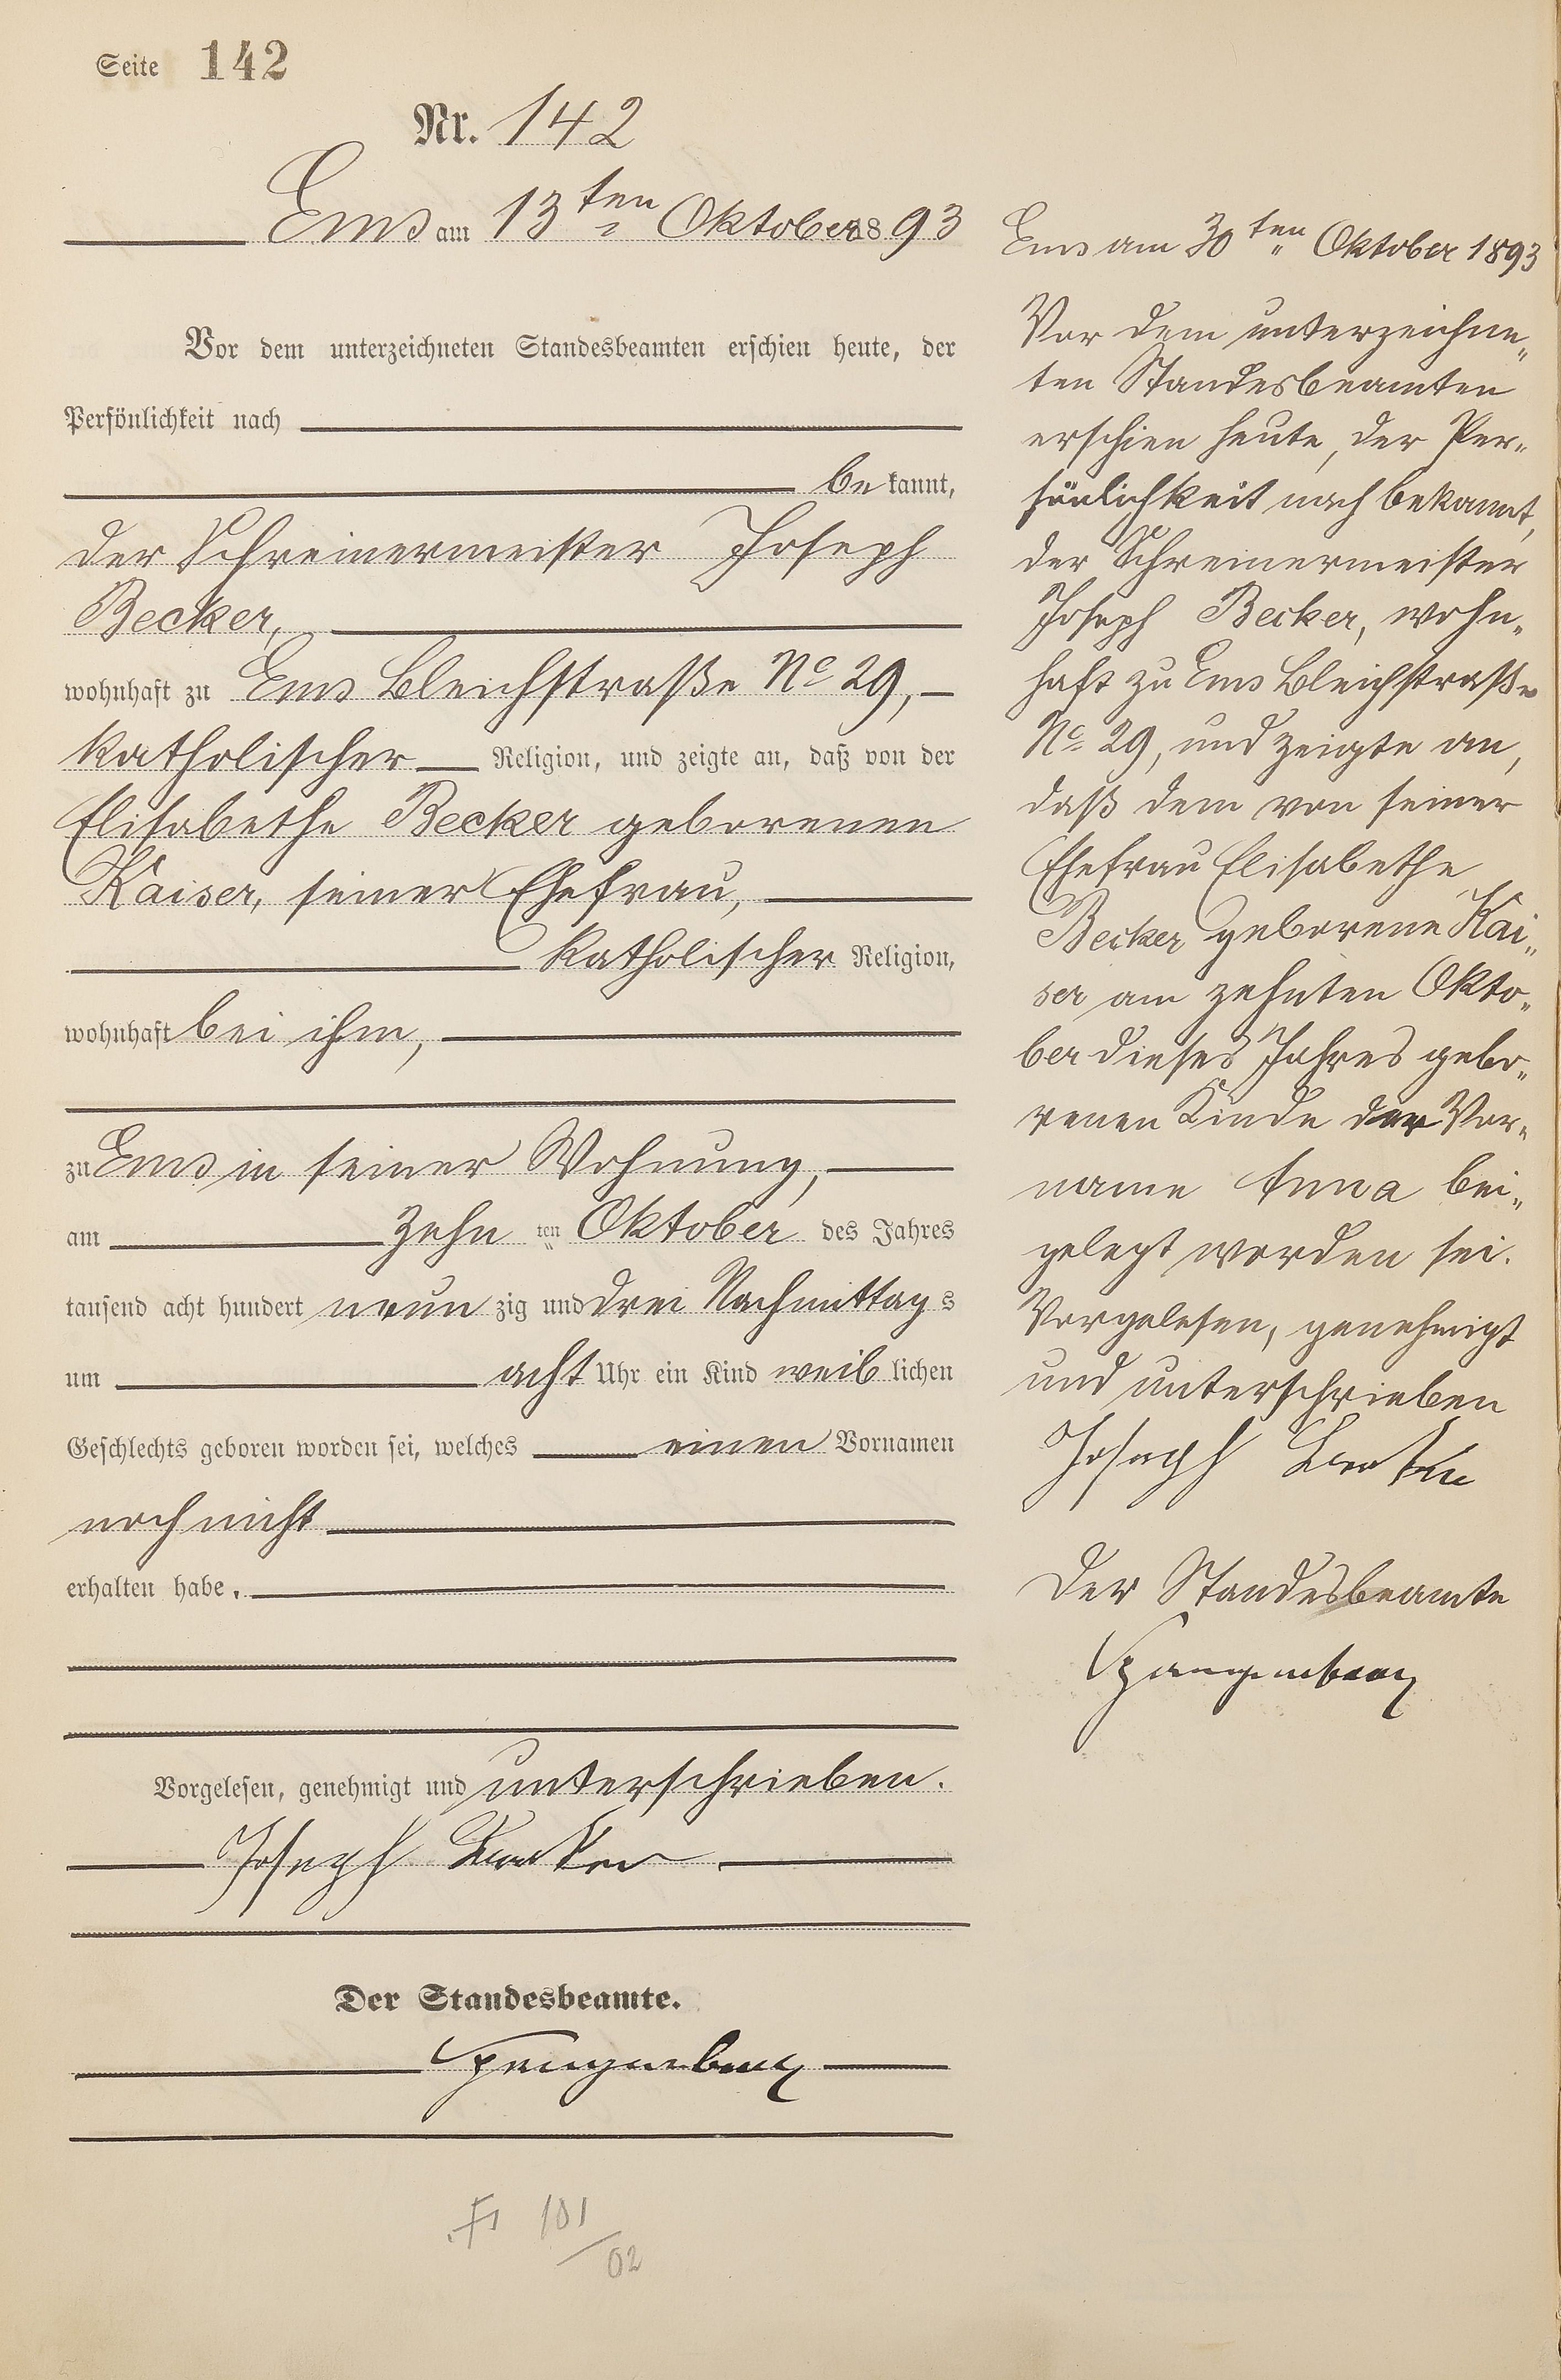 Seite 142
Nr. 142
Ems am 13ten Oktober 1893
Vor dem unterzeichneten Standesbeamten erschien heute, der
Persönlichkeit nach
be kannt,
der Schreinermeister Joseph
Becker,
wohnhaft zu Ems Bleichstraße No 29,
katholischer Religion, und zeigte an, daß von der
Elisabethe Becker geborenen
Kaiser, seiner Ehefrau,
katholischer Religion,
wohnhaft bei ihm,
zu Ems in seiner Wohnung,
am zehn ten Oktober des Jahres
tausend acht hundert neun zig und drei Nachmittag s
um acht Uhr ein Kind weib lichen
Geschlechts geboren worden sei, welches einen Vornamen
noch nicht
erhalten habe.
Vorgelesen, genehmigt und unterschrieben.
Joseph Becker
Der Standesbeamte.
Spangenberg
101
/02
Ems am 30ten Oktober 1893
Vor dem unterzeichne„
ten Standesbeamten
erschien heute, der Per„
sönlichkeit nach bekannt,
der Schreinermeister
Joseph Becker, wohn„
haft zu Ems Bleichstraße
No 29, und zeigte an,
daß dem von seiner
Ehefrau Elisabethe
Becker geborene Kai„
ser am zehnten Okto„
ber dieses Jahres gebo„
renen Kinde der Vor„
name Anna bei„
gelegt worden sei.
Vorgelesen, genehmigt
und unterschrieben
Joseph Becker
Der Standesbeamte
Spangenberg